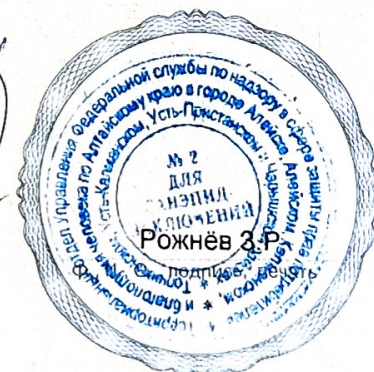 Территориальный отдел Управления Федеральной службы по надзору в сфере защиты прав потребителей
и благополучия человека по Алтайскому краю в городе Алейске, Алейском,
Усть-Калманском, Усть-Пристанском и
№ 2
ДЛЯ
САНЭПИД.
ЗАКЛЮЧЕНИЙ
Рожнёв З.Р.
подпись, печать